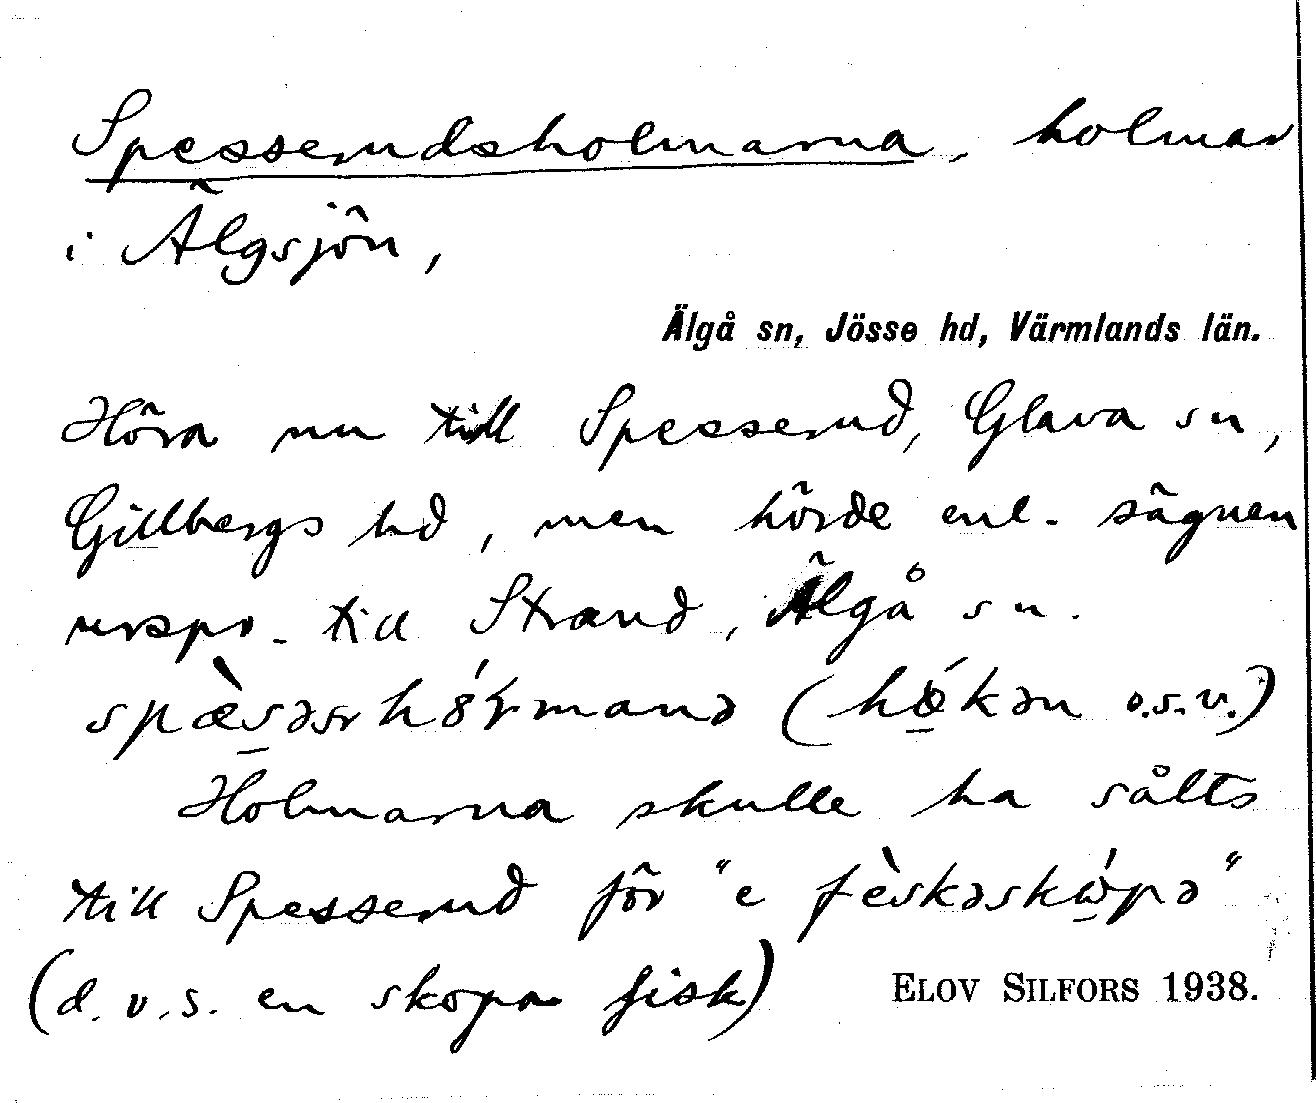 Spesserudsholmarna, holmar
i Älgsjön,
Älgå sn, Jösse hd, Värmlands län.
Höra nu till Spesserud, Glava sn,
Gillbergs hd, men hörde enl. sägnen
urspr. till Strand, Älgå sn.
(      o.s.v.)
Holmarna skulle ha sålts
till Spesserud för "e fèskəskópə"
(d.v.s. en skopa fisk)
ELOV SILFORS 1938.